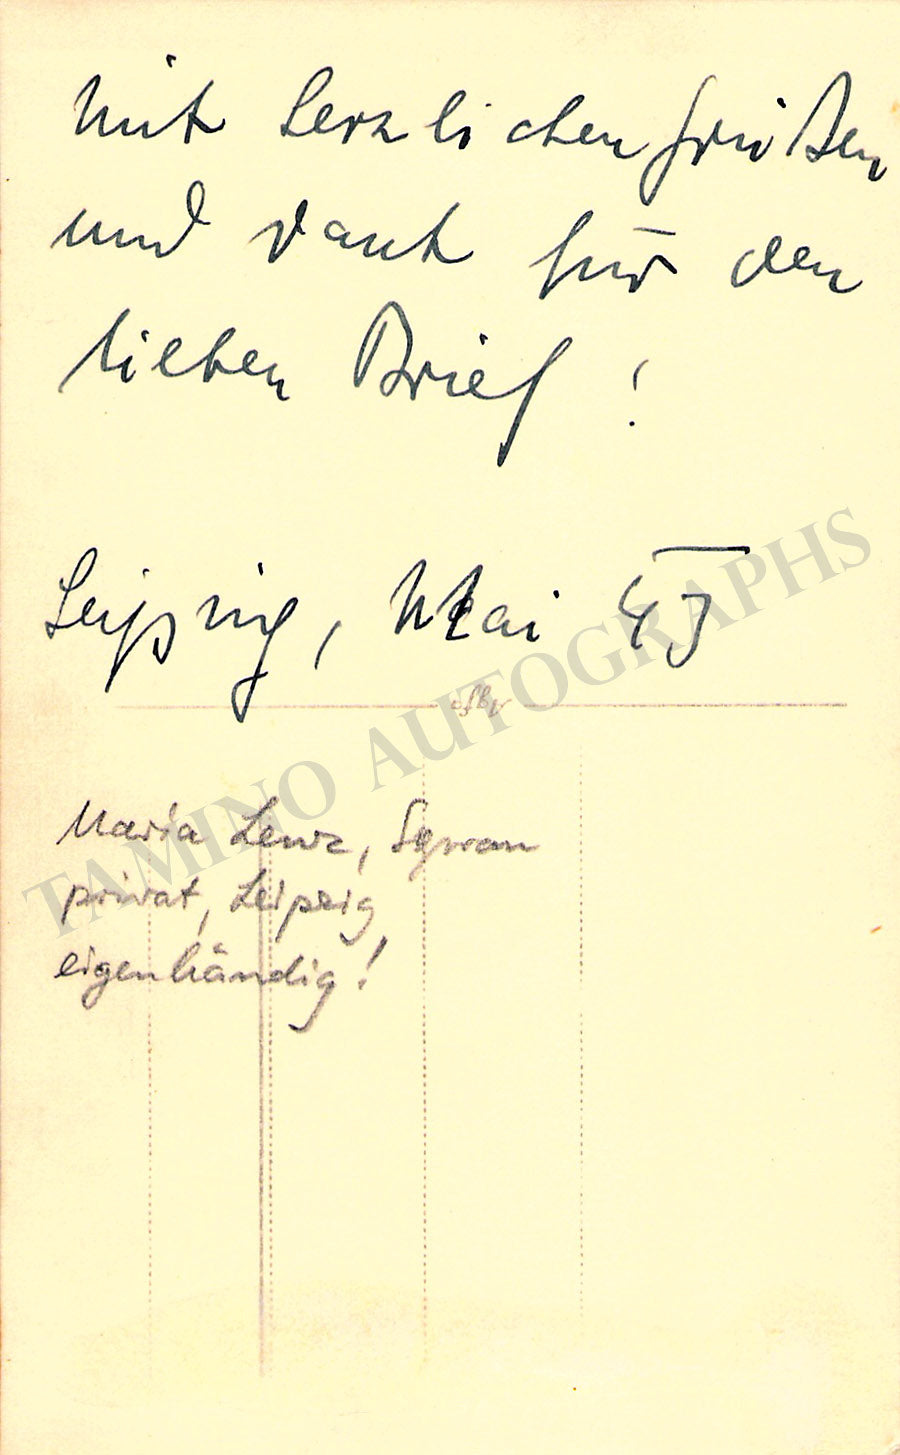 Mit herzlichen Grüßen
und Dank für den
lieben Brief!
Leipzig, Mai 43
Maria Lenz, Sopran
privat, Leipzig
eigenhändig!
TAMINO AUTOGRAPHS